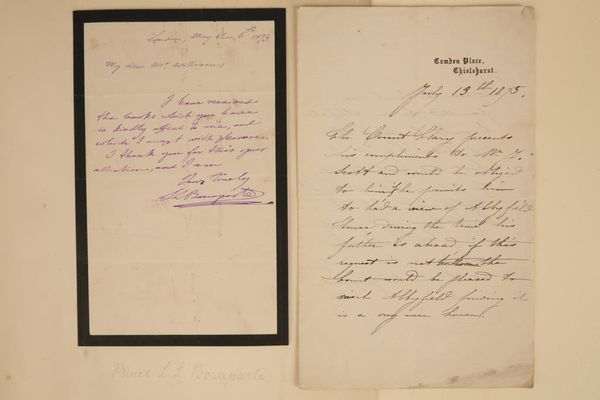 London, May the 5th 1873
My dear Mr Williams
I have received
the books which you have
so kindly offered to me, and
which I accept with pleasure.
I thank you for this your
attention, and I am
Yours truly
L. L. Bonaparte
Prince L. L. Bonaparte
Camden Place,
Chislehurst.
July 13th 1875.
The Count Clary presents
his compliments to Mr J.
Scott and would be obliged
to him if he permits him
to had a view of
House during the time his
father is abroad, if this
request is not the
Count would be pleased to
visit finding it
is a very nice house.